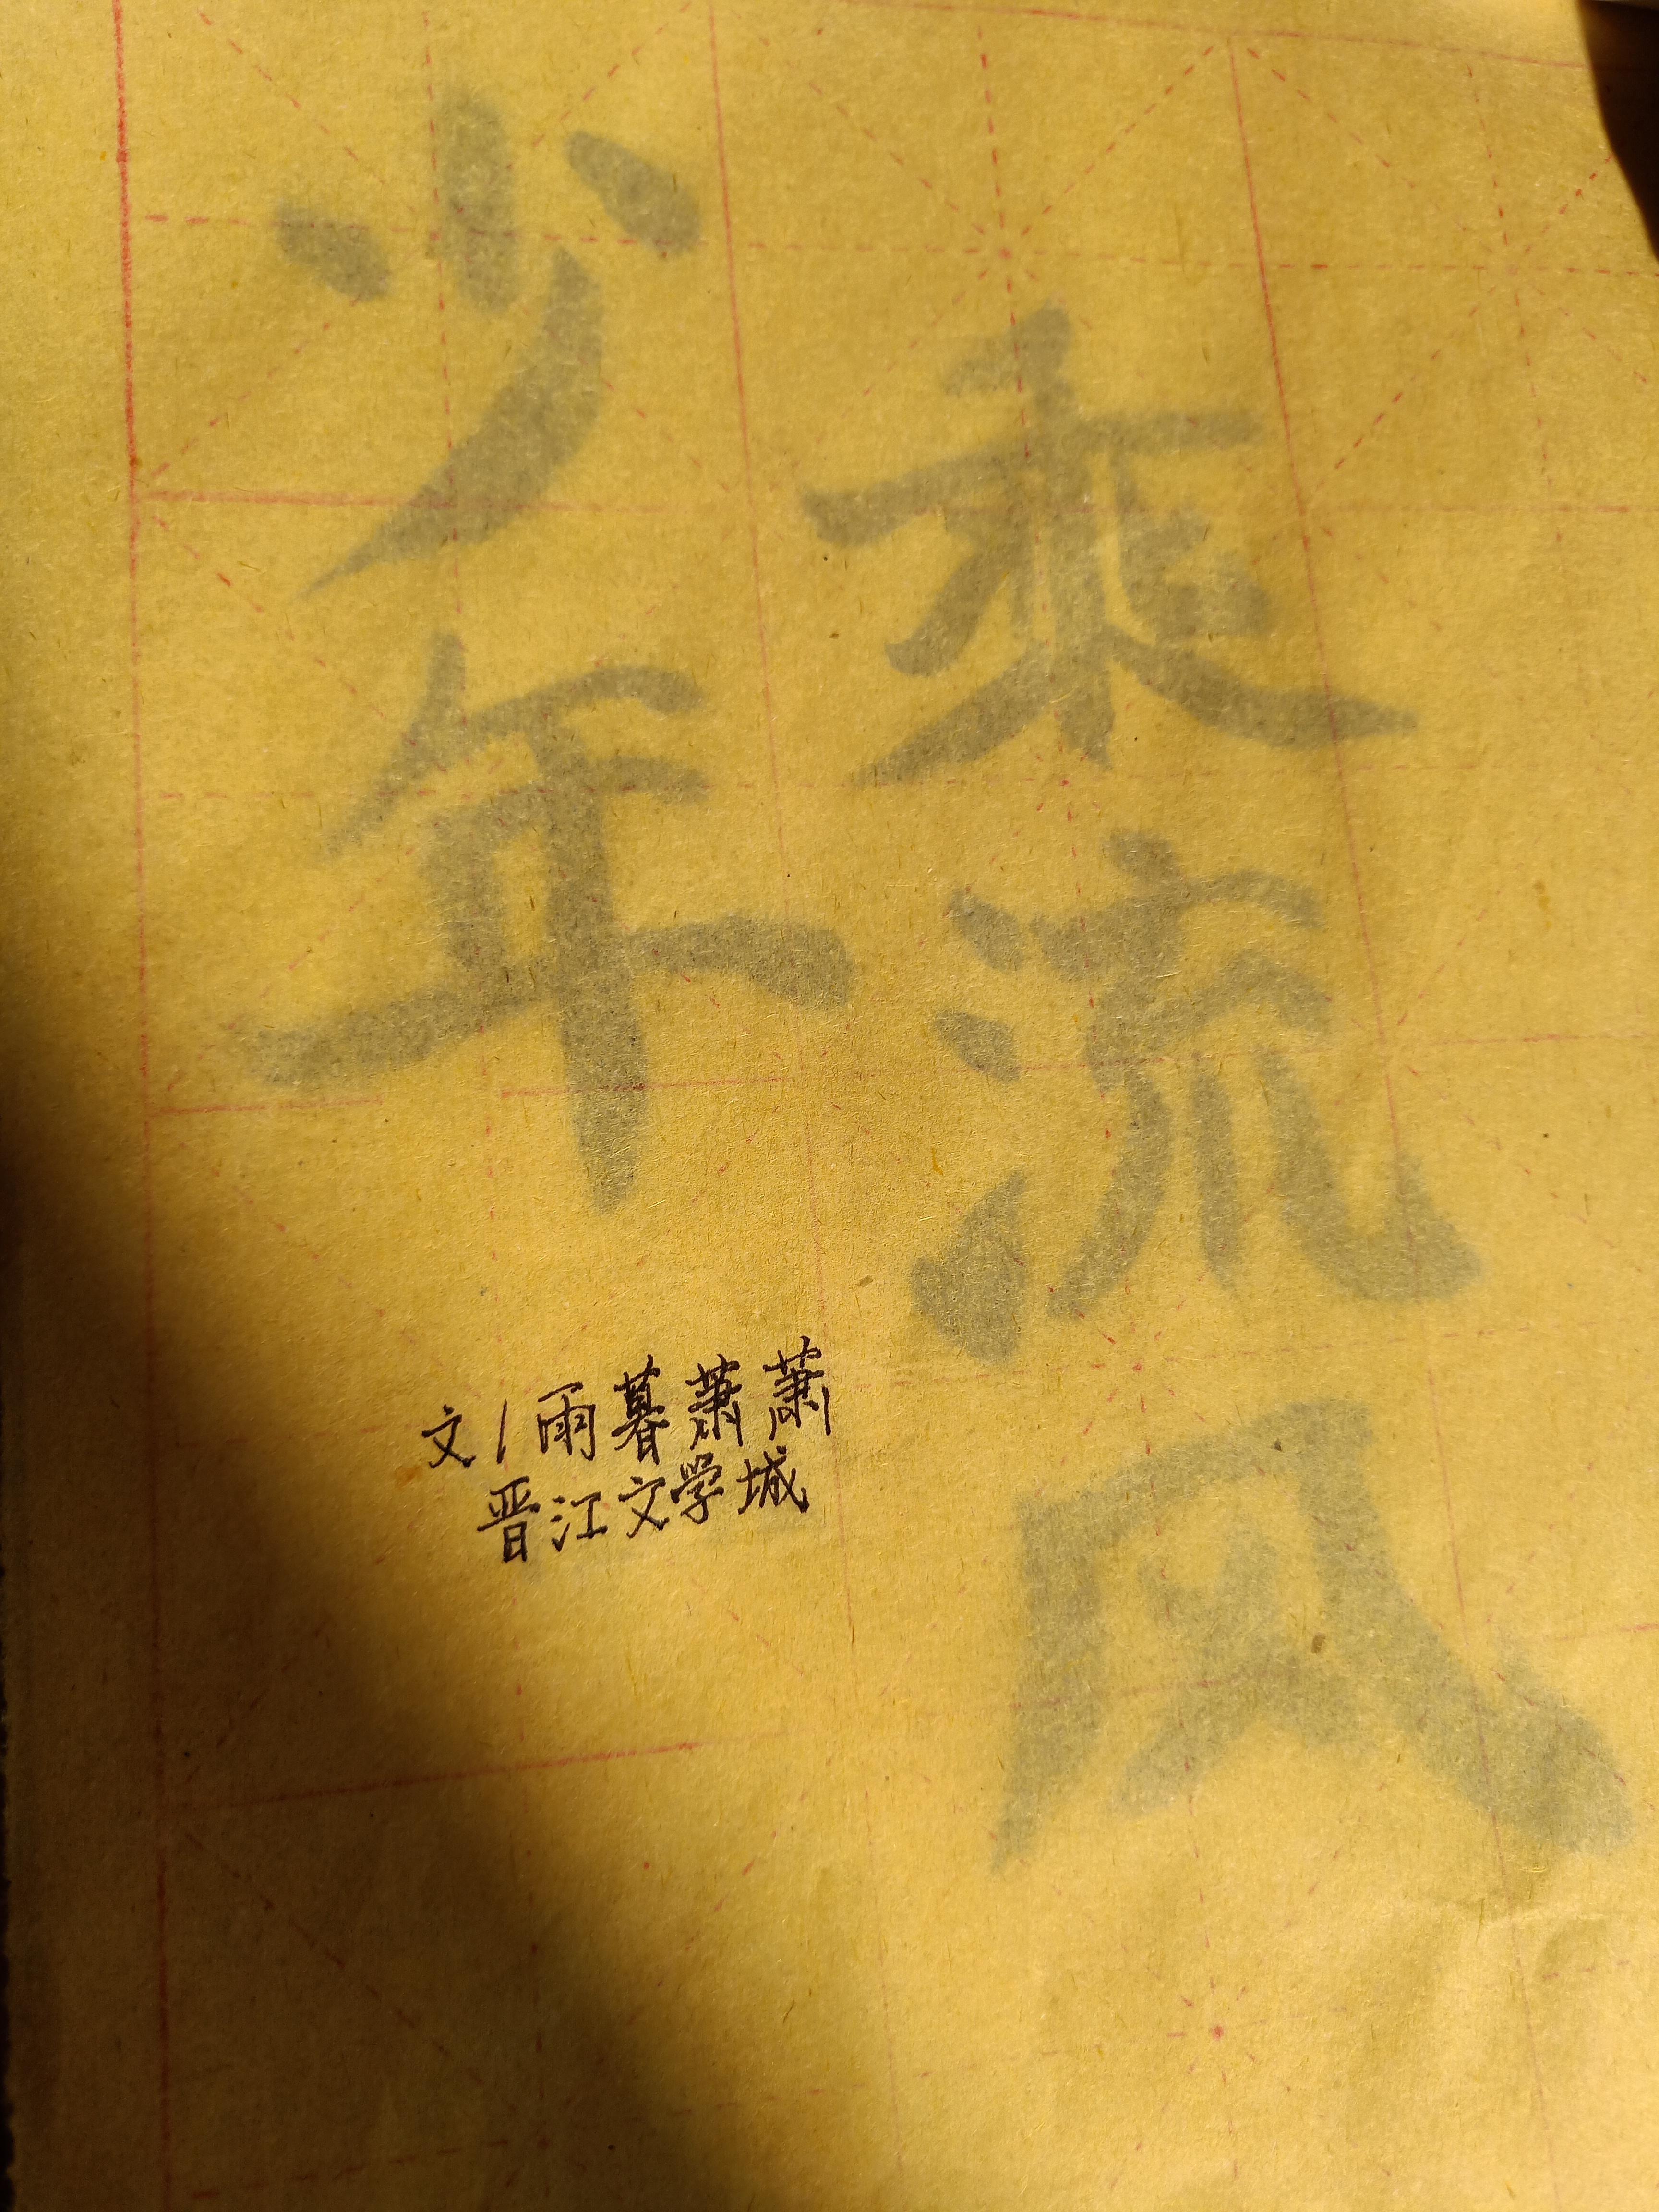 少年
乘流风
文/雨暮萧萧
晋江文学城